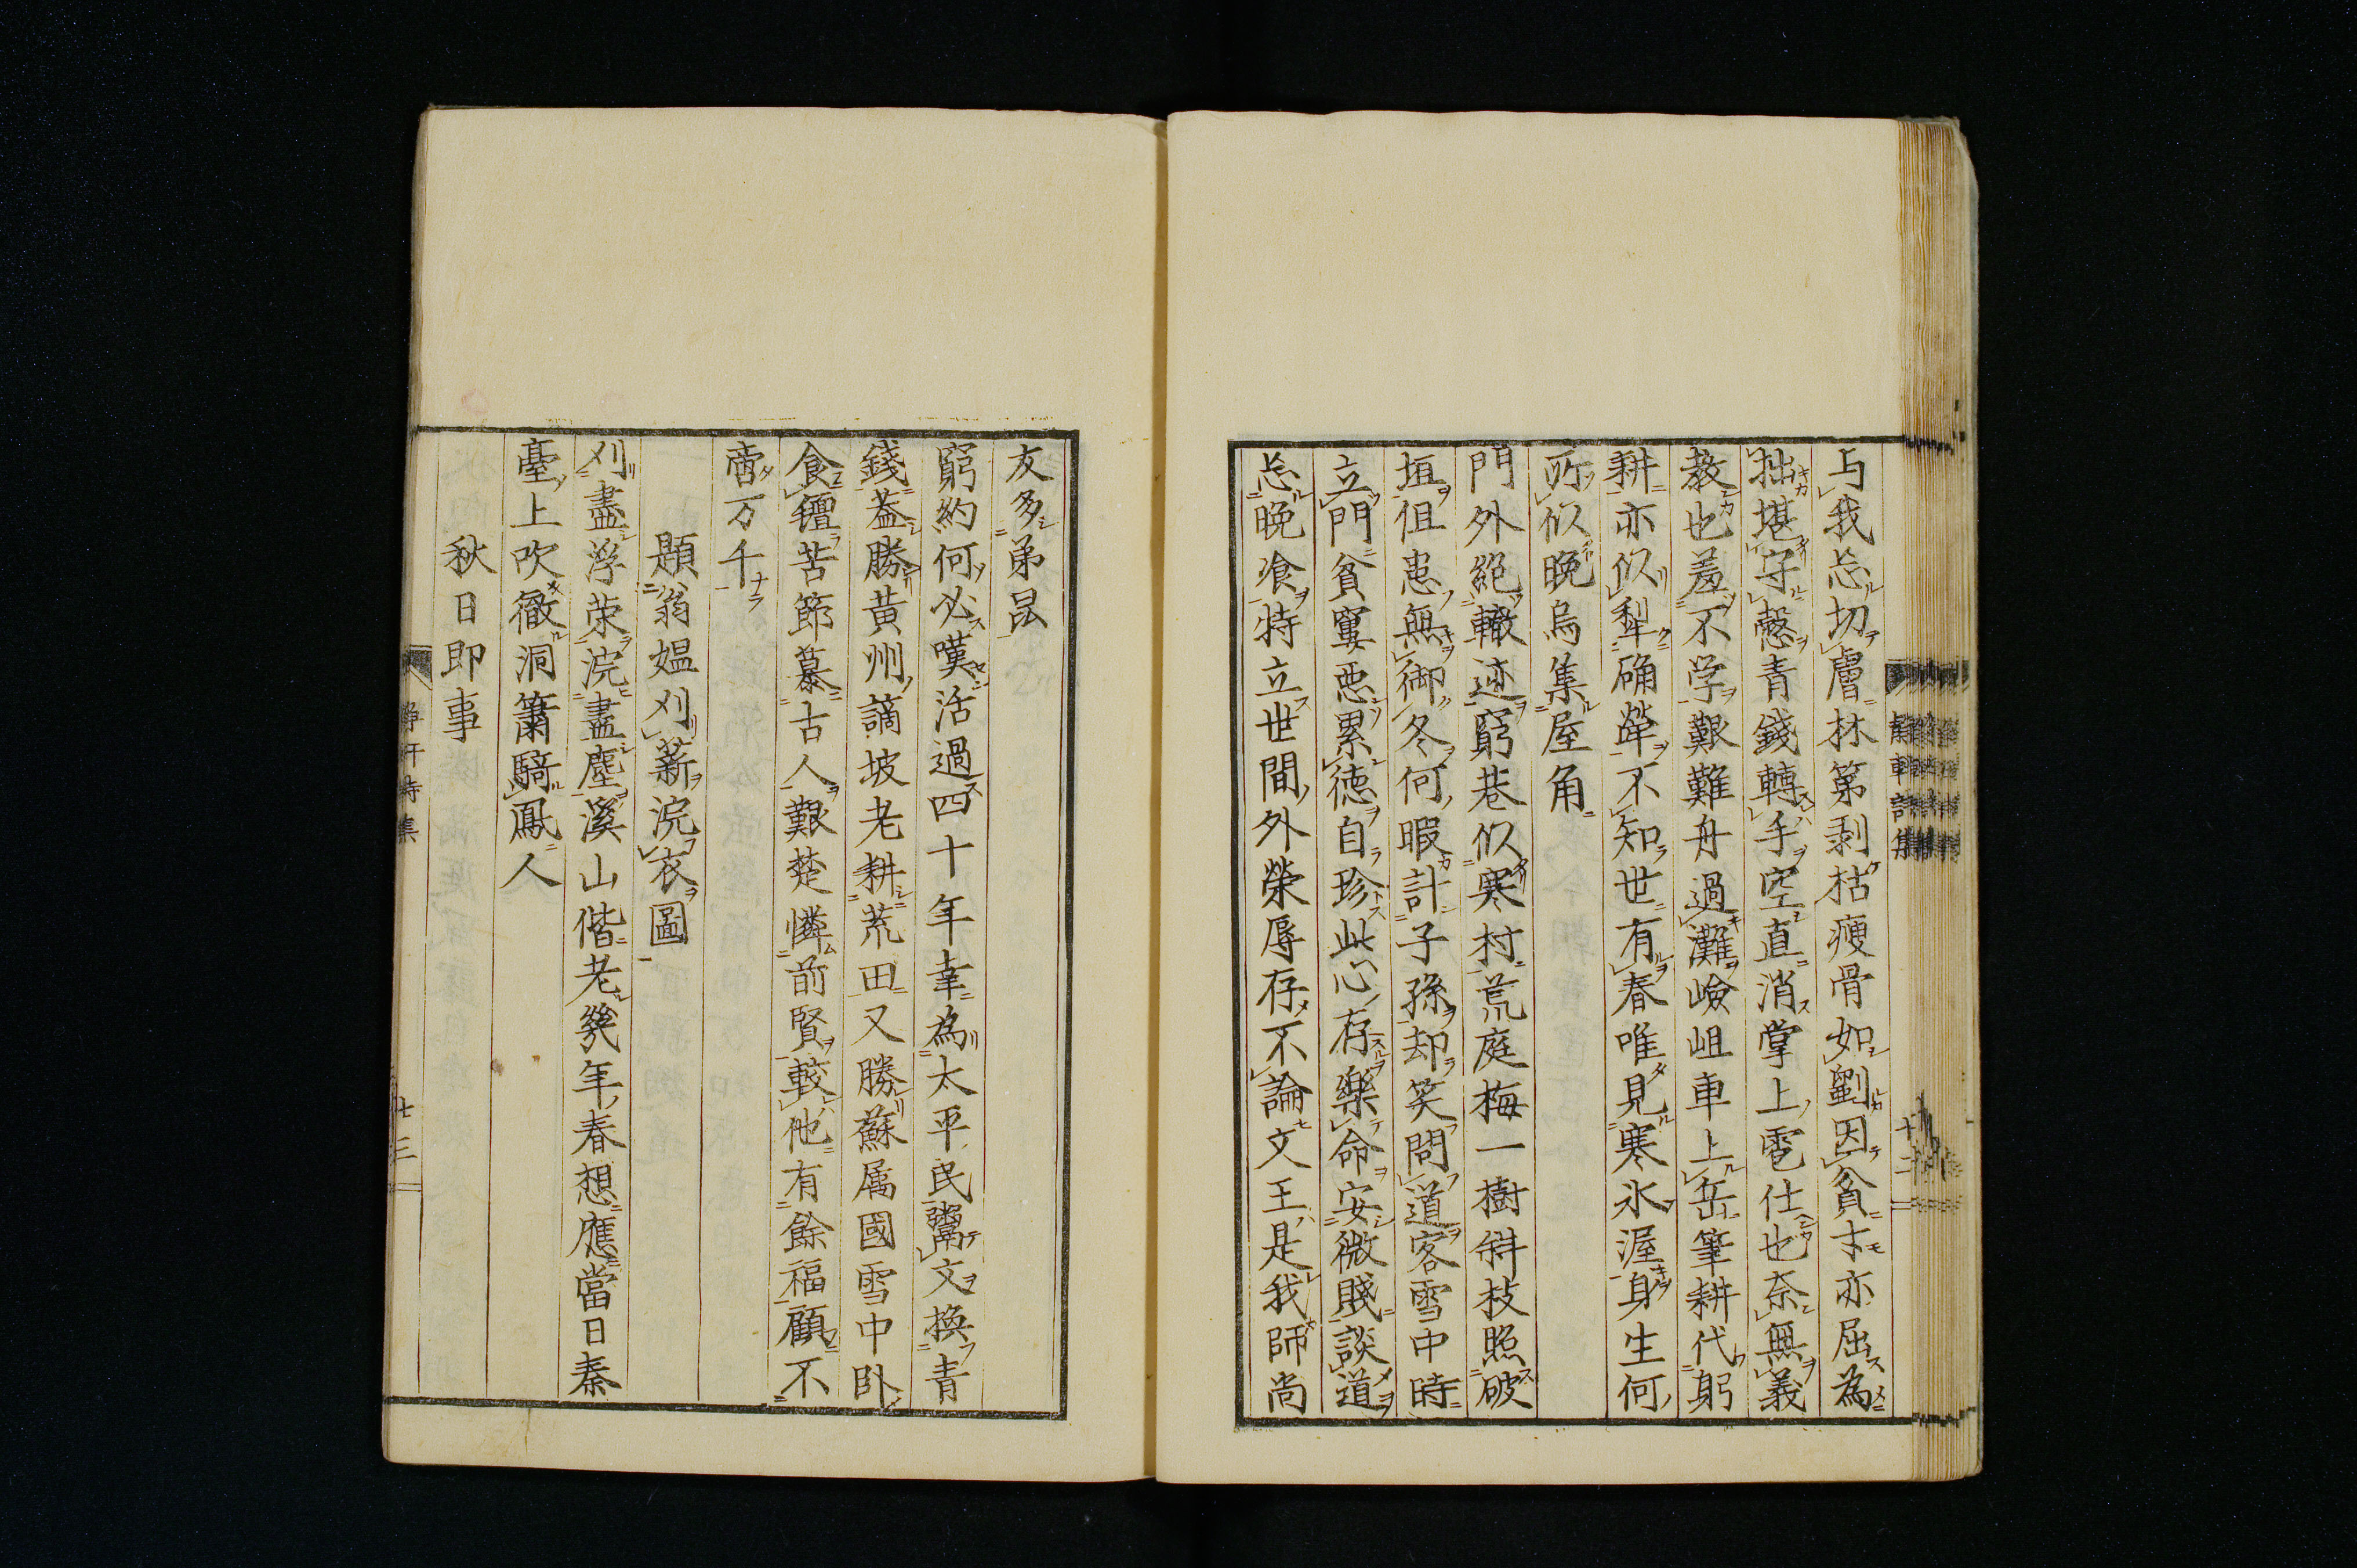 与我忘切膚林第剥枯痩骨如劉因貧才亦屈為
拙堪守愨青錢轉手空直消掌上雹仕也奈無義
教也羞不学艱難舟過灘嶮岨車上岳筆耕代躬
耕亦似犁确犖不知世有春唯見寒氷渥身生何
所似晩烏集屋角
門外絕轍迹窮巷似寒村荒庭梅一樹斜枝照破
垣但患無御冬何暇計子孫却笑問道客雪中時
立門貧窶悪累徳自珍此心存樂命安微賤談道
忘晩飡特立世間外榮辱存不論文王是我師尚
友多弟昆
窮約何必嘆活過四十年幸為太平民鬻文換青
錢蓋勝黄州謫坡老耕荒田又勝蘇属國雪中卧
食氊苦節慕古人艱楚憐前賢較他有餘福顧不
啻万千
題翁媼刈薪浣衣圖
刈盡浮荣浣盡塵溪山偕老幾年春想應當日秦
臺上吹徹洞簫騎鳳人
秋日即事
静軒詩集
十二